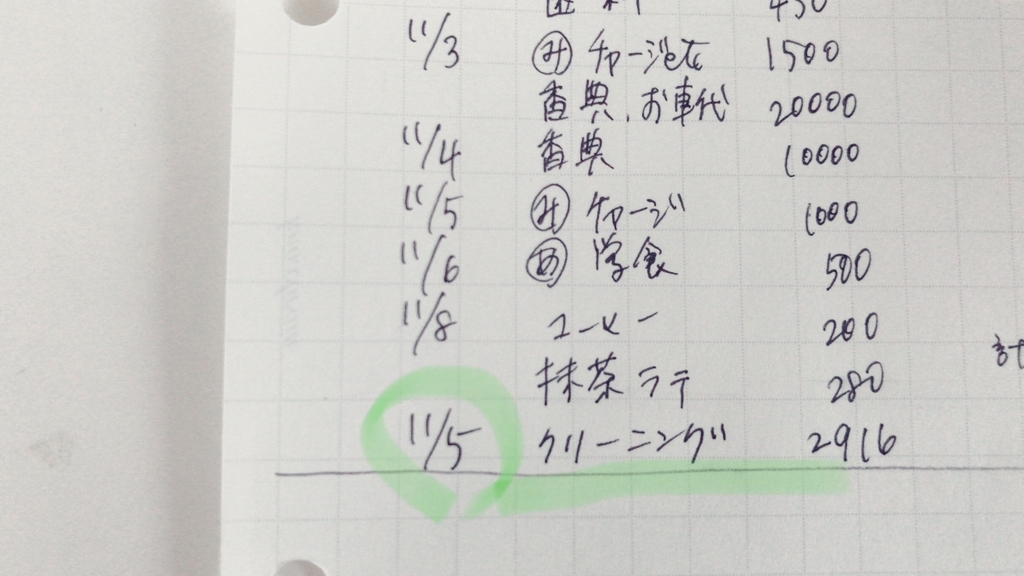 450
11/3 み チャージ
1500
香典、お車代 20000
11/4 香典 10000
11/5 み チャージ 1000
11/6 あ 学食 500
11/8 コーヒー 200
抹茶ラテ 280
計
11/5 クリーニング 2916